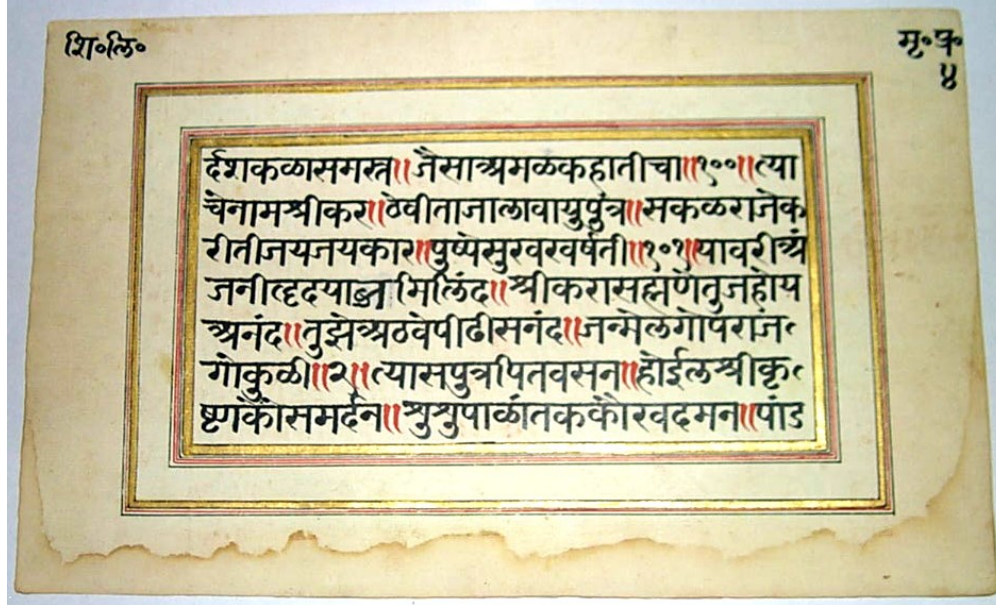 शि॰लि॰
मृ॰प्र॰
४
र्दशकळासमस्त॥जैसाअमळकहातीचा॥१००॥त्या
चेंनामश्रीकर॥ठेवीताजालावायुपुत्र॥सकळराजेक
रीतीजयजयकार॥पुष्पेसुरवरवर्षती॥१०१॥यावरीअं
जनीहृदयाब्जमिलिंद॥श्रीकरासह्मणेतुजहोय
अनंद॥तुझेअठवेपीढीसनंद॥जन्मेलगोपराज
गोकुळी॥२॥त्यासपुत्रपितवसन॥होईलश्रीकृ
ष्णकौंसमर्दन॥श्रुश्रुपाळांतककौरवदमन॥पांड